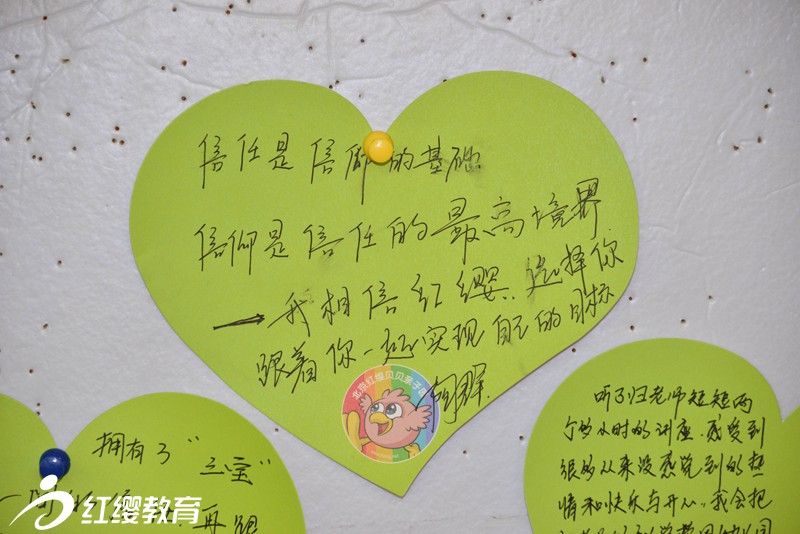 信任是信仰的基础
信仰是信任的最高境界
→我相信红缨.选择你
跟着你一起实现自己的目标
北京红缨贝贝亲子园
拥有了“三宝”
再跟
听了归老师短短两
个多小时的讲座.感受到
很多从来没感觉到的热
情和快乐与开心.我会把
红缨教育